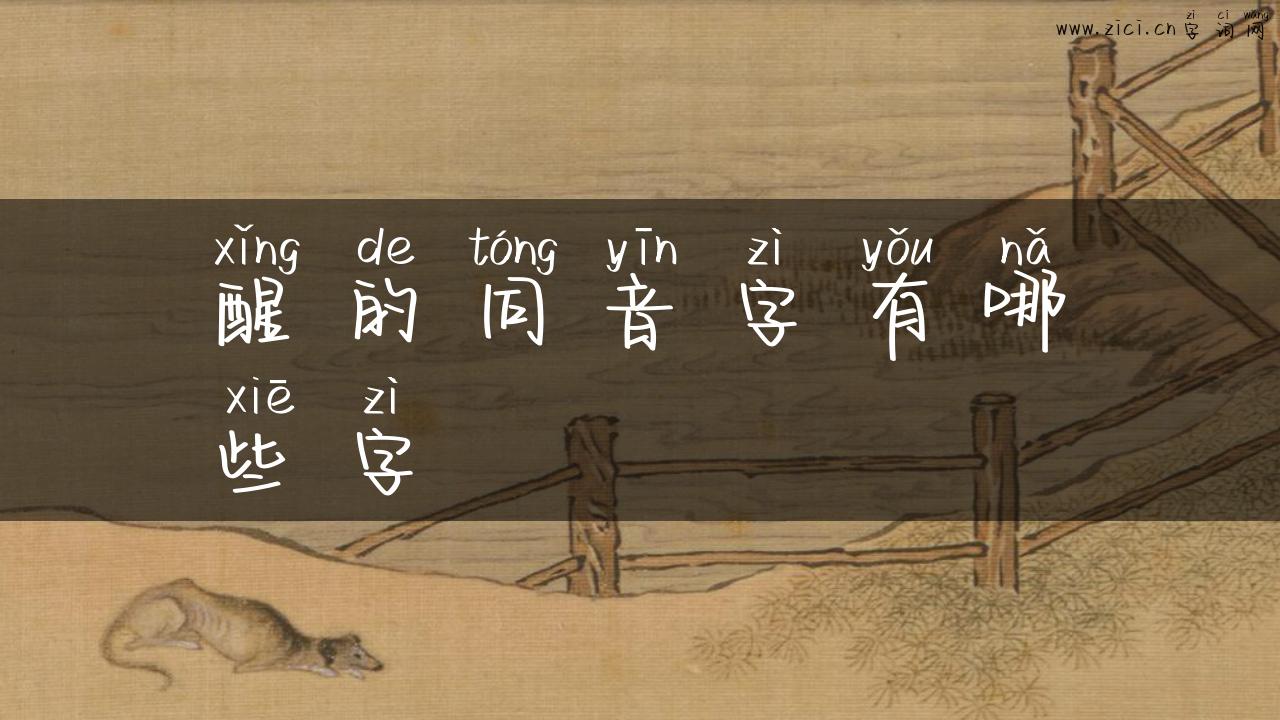 zì cí wǎng
www.zici.cn 字词网
xǐng de tóng yīn zì yǒu nǎ
醒的同音字有哪
xiē zì
些字